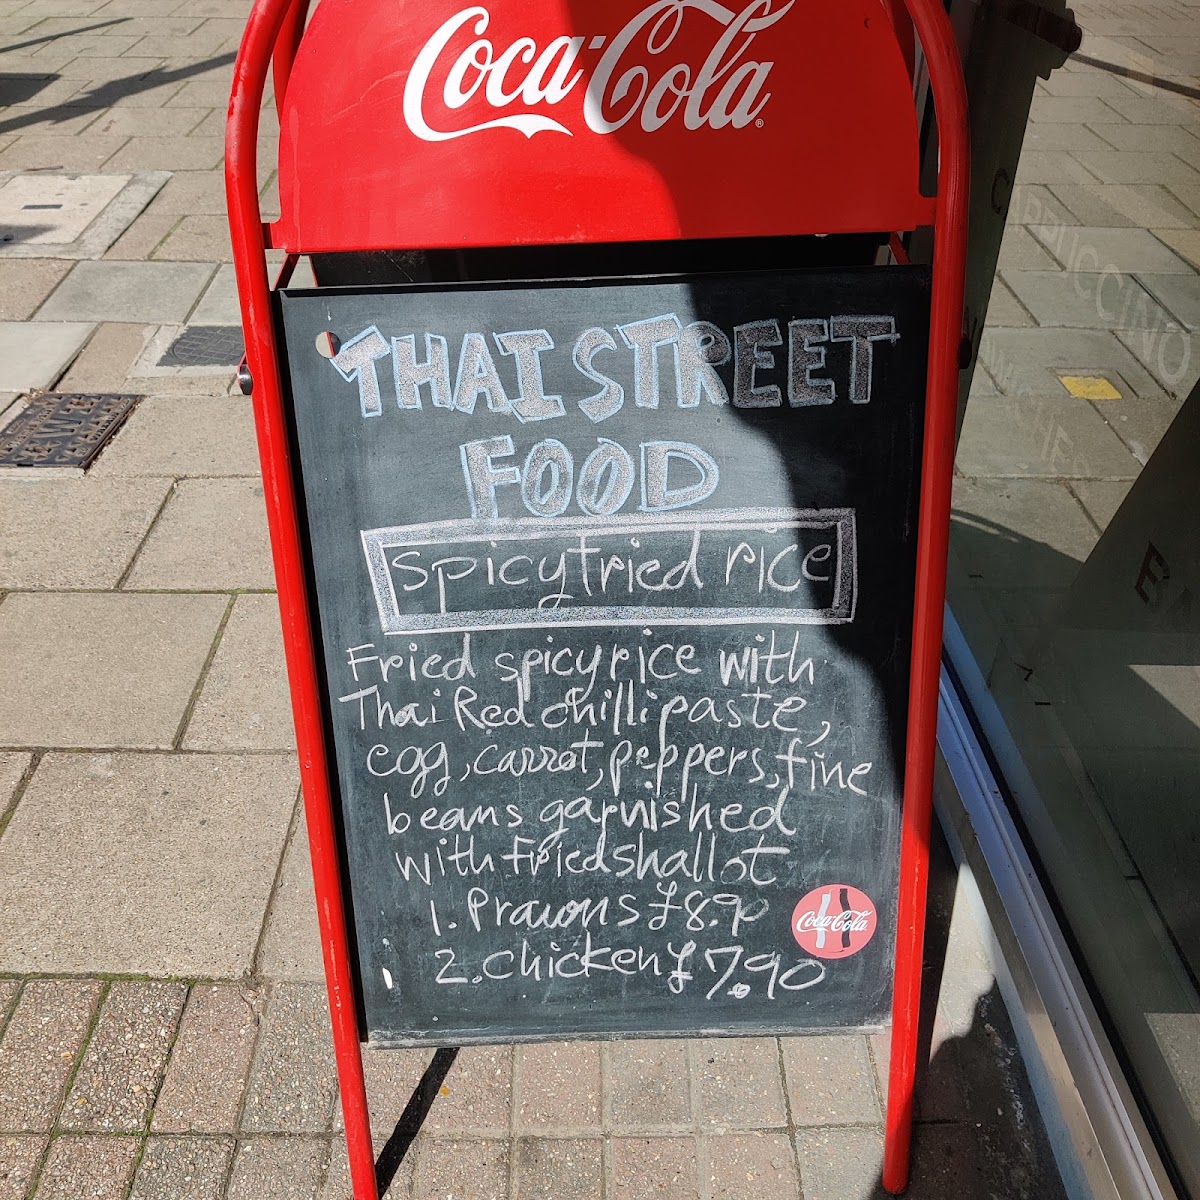 Coca-Cola
THAI STREET
FOOD
Spicy fried rice
Fried spicy rice with
Thai Red chilli paste,
egg, carrot, peppers, fine
beans garnished
with fried shallot
1. Prawns £8.90
2. chicken £7.90
Coca-Cola
CAPPUCCINO